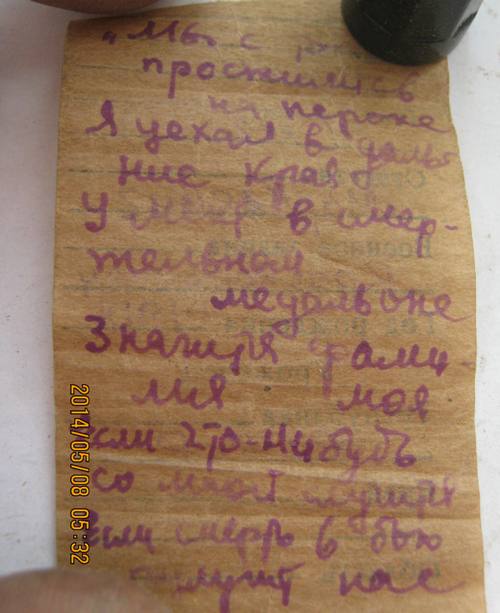 „Мы с
простились
на пероне
Я уехал в даль
ние края
У меня в смер-
тельном
медальоне
Значится фами-
лия моя
если что-нибудь
со мной случится
если смерть в бою
нас
2014/05/08 05:32